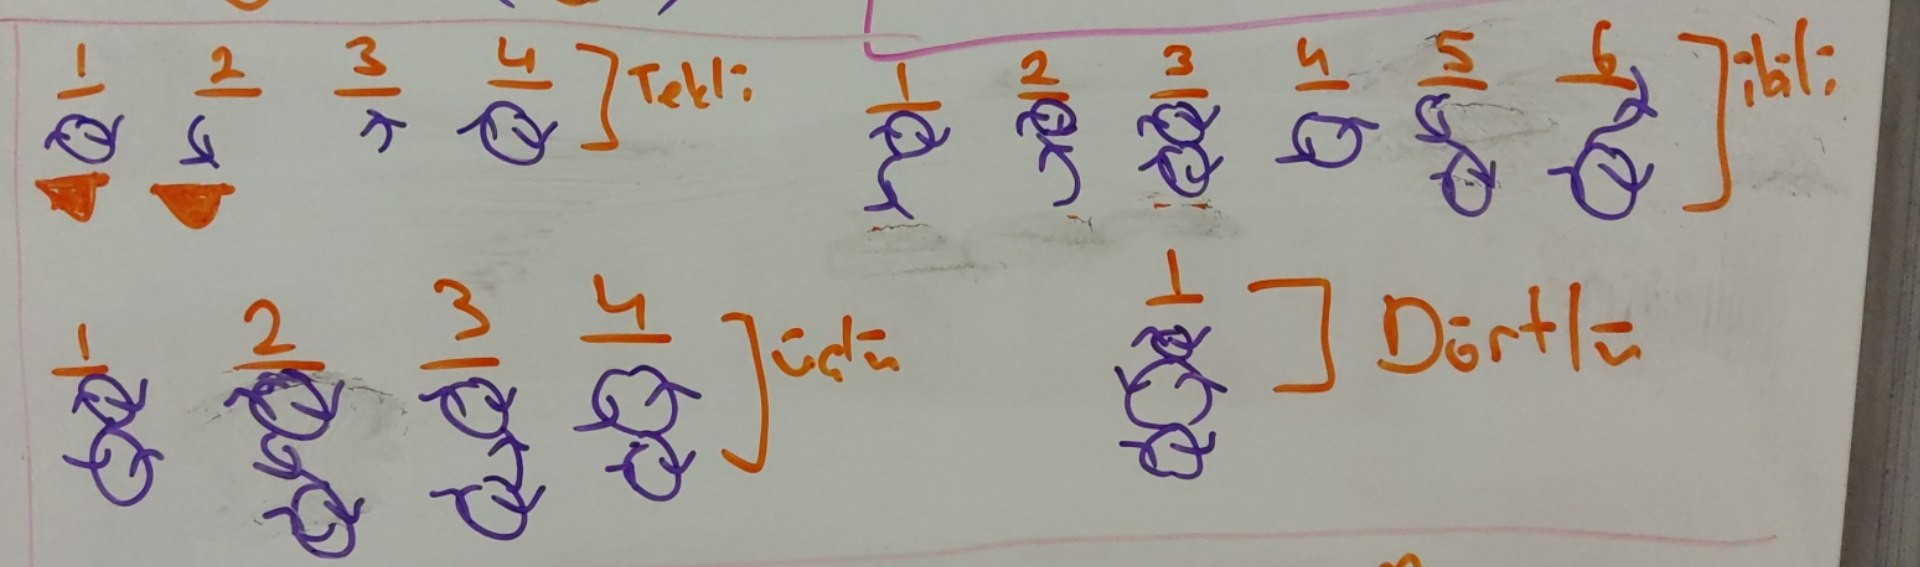 1 2 3 4 ] Tekli
1 2 3 4 5 6 ] ikili
1 2 3 4 ] üclü
1 ] Dörtlü